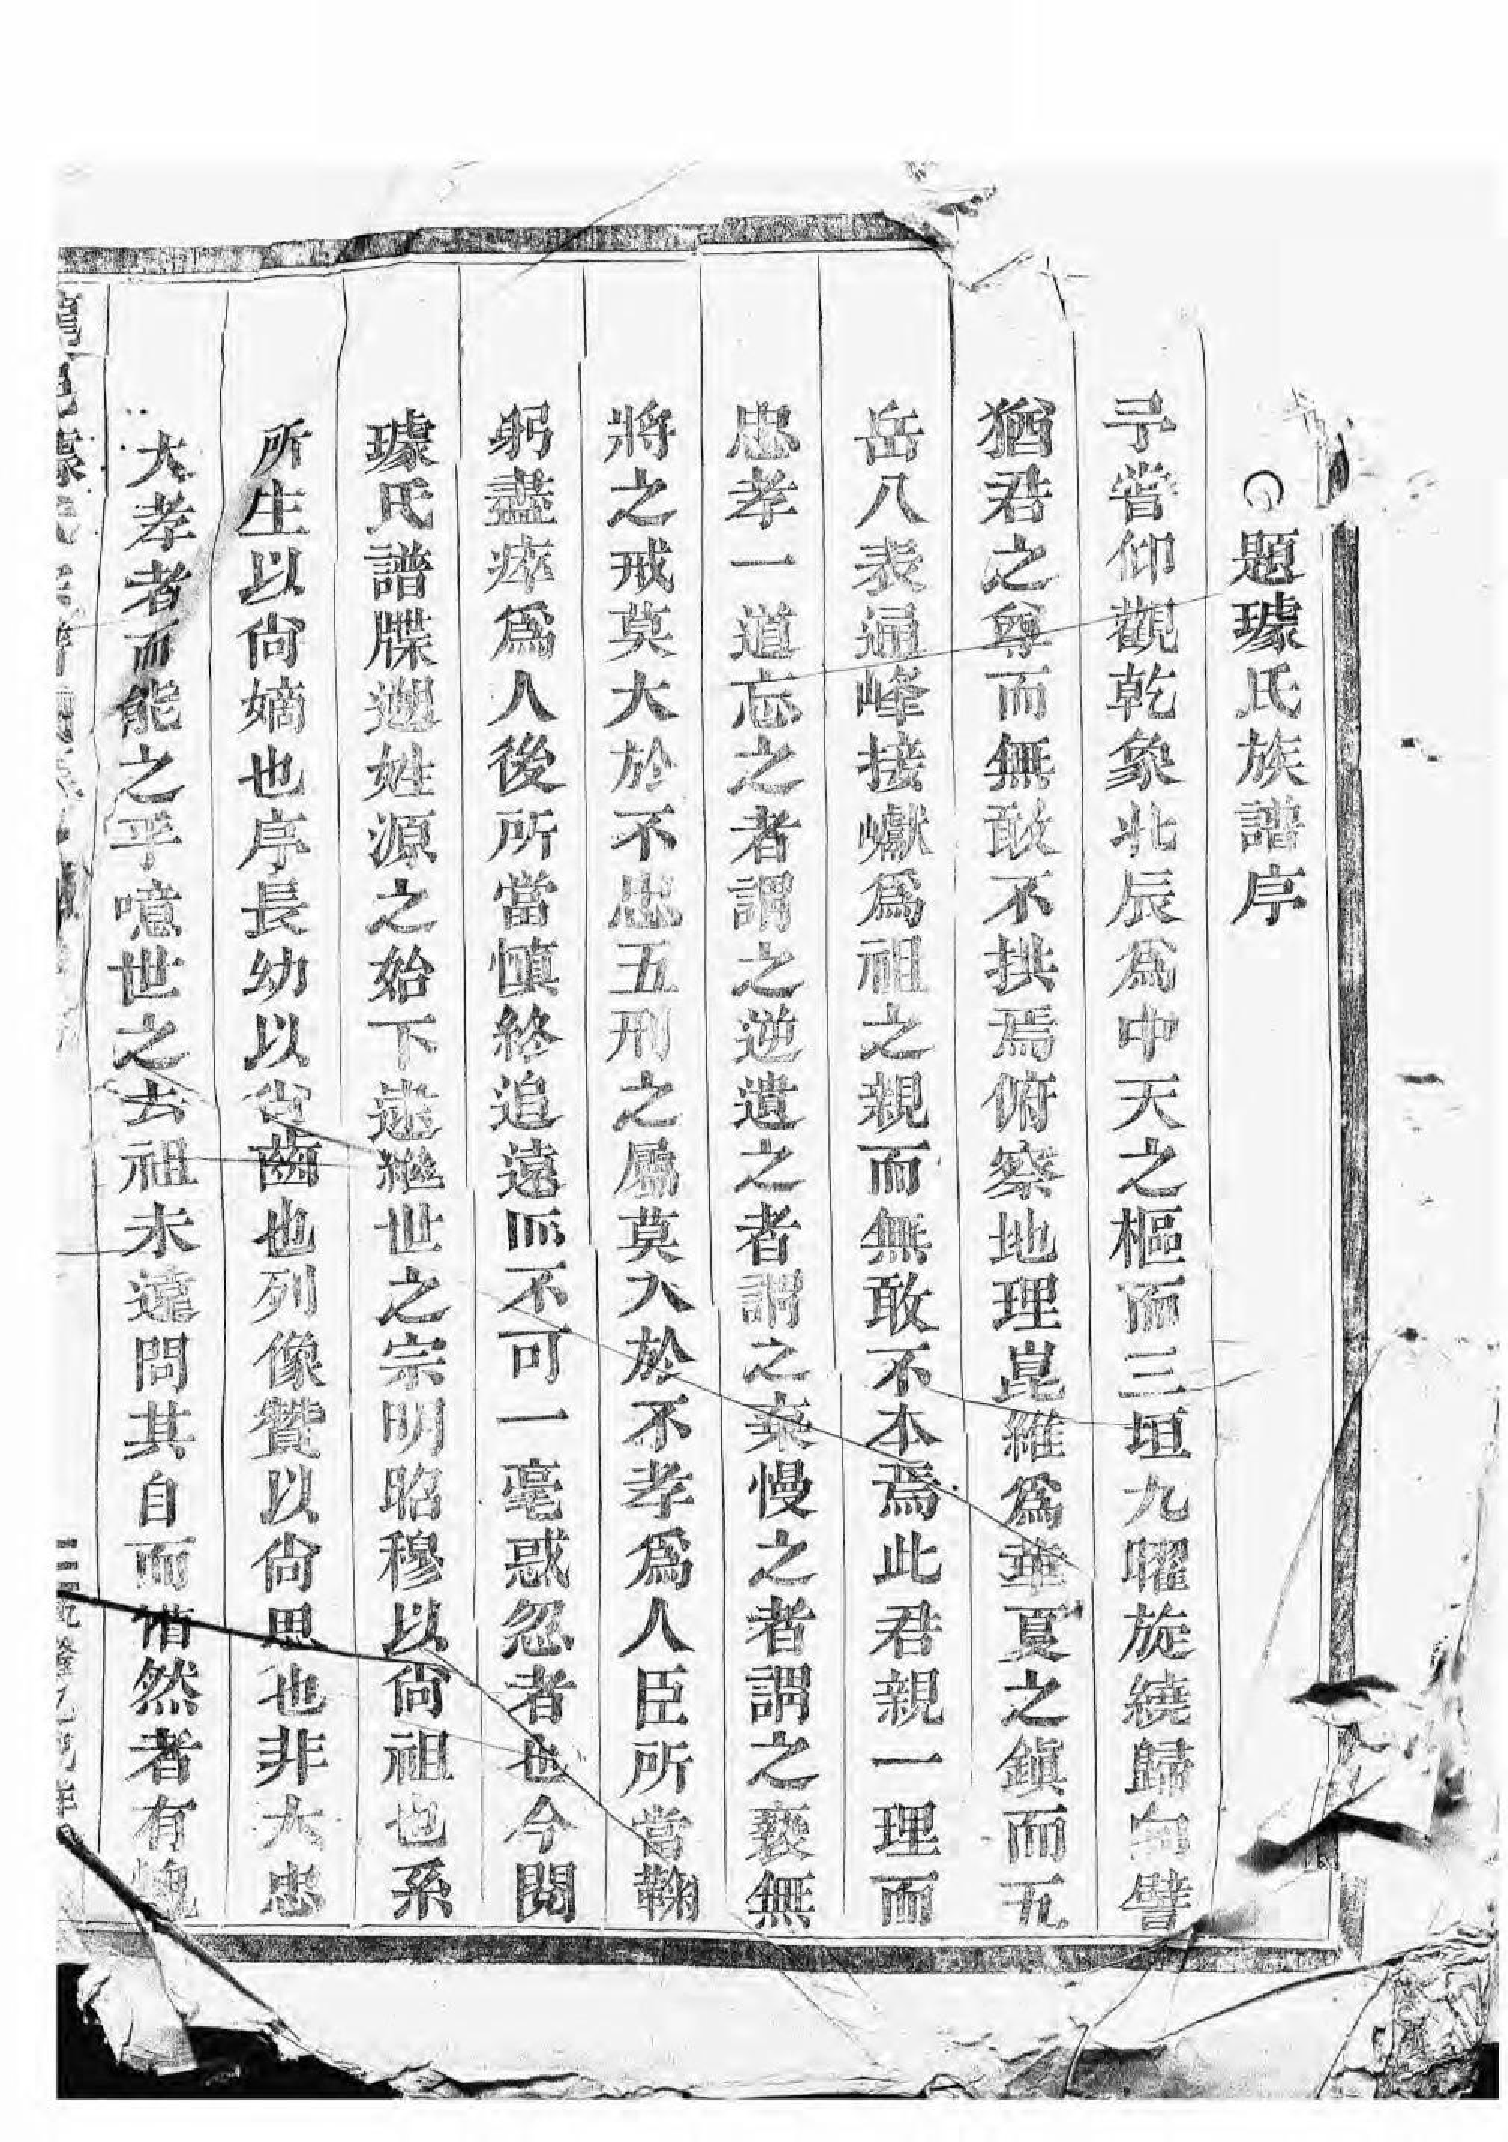 題璩氏族譜序
予嘗仰觀乾象北辰為中天之樞而三垣九曜旋繞歸向譬
猶君之尊而無敢不拱焉俯察地理崑維為華夏之鎮而五
岳八表通峰接巘為祖之親而無敢不本焉此君親一理而
忠孝一道忘之者謂之逆遺之者謂之棄慢之者謂之褻無
將之戒莫大於不忠五刑之屬莫大於不孝為人臣所當鞠
躬盡瘁為人後所當慎終追遠而不可一毫惑忽者也今閱
璩氏譜牒遡姓源之始下逮繼世之宗明昭穆以尙祖也系
所生以尙嫡也序長幼以尙齒也列像贊以尙思也非大忠
大孝者而能之乎噫世之去祖未遠問其自而懵然者有愧